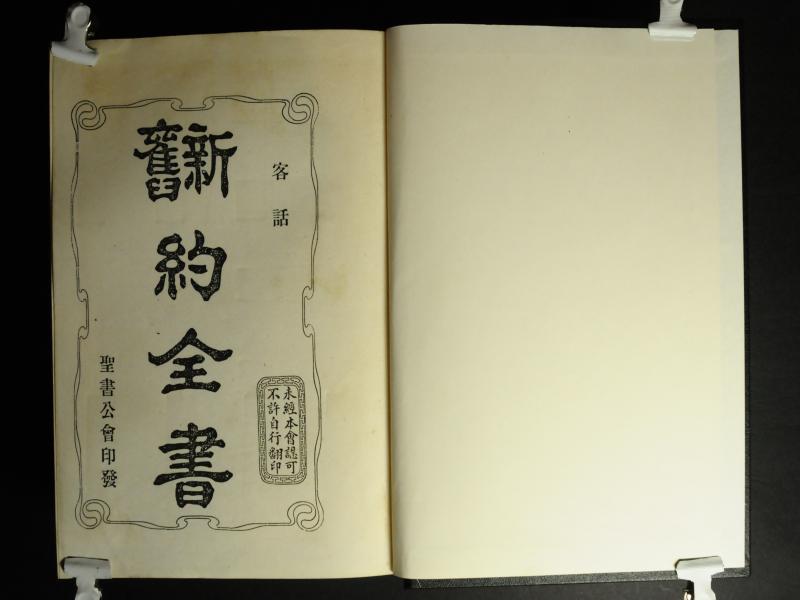 客話
新舊
約全書
未經本會認可
不許自行翻印
聖書公會印發